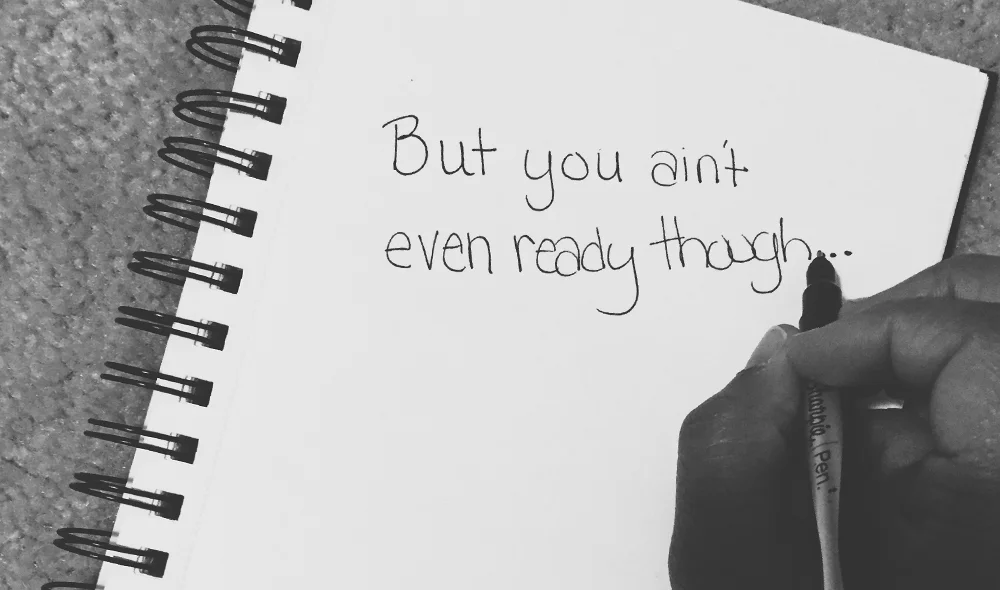 But you ain't
even ready though...
Pen.